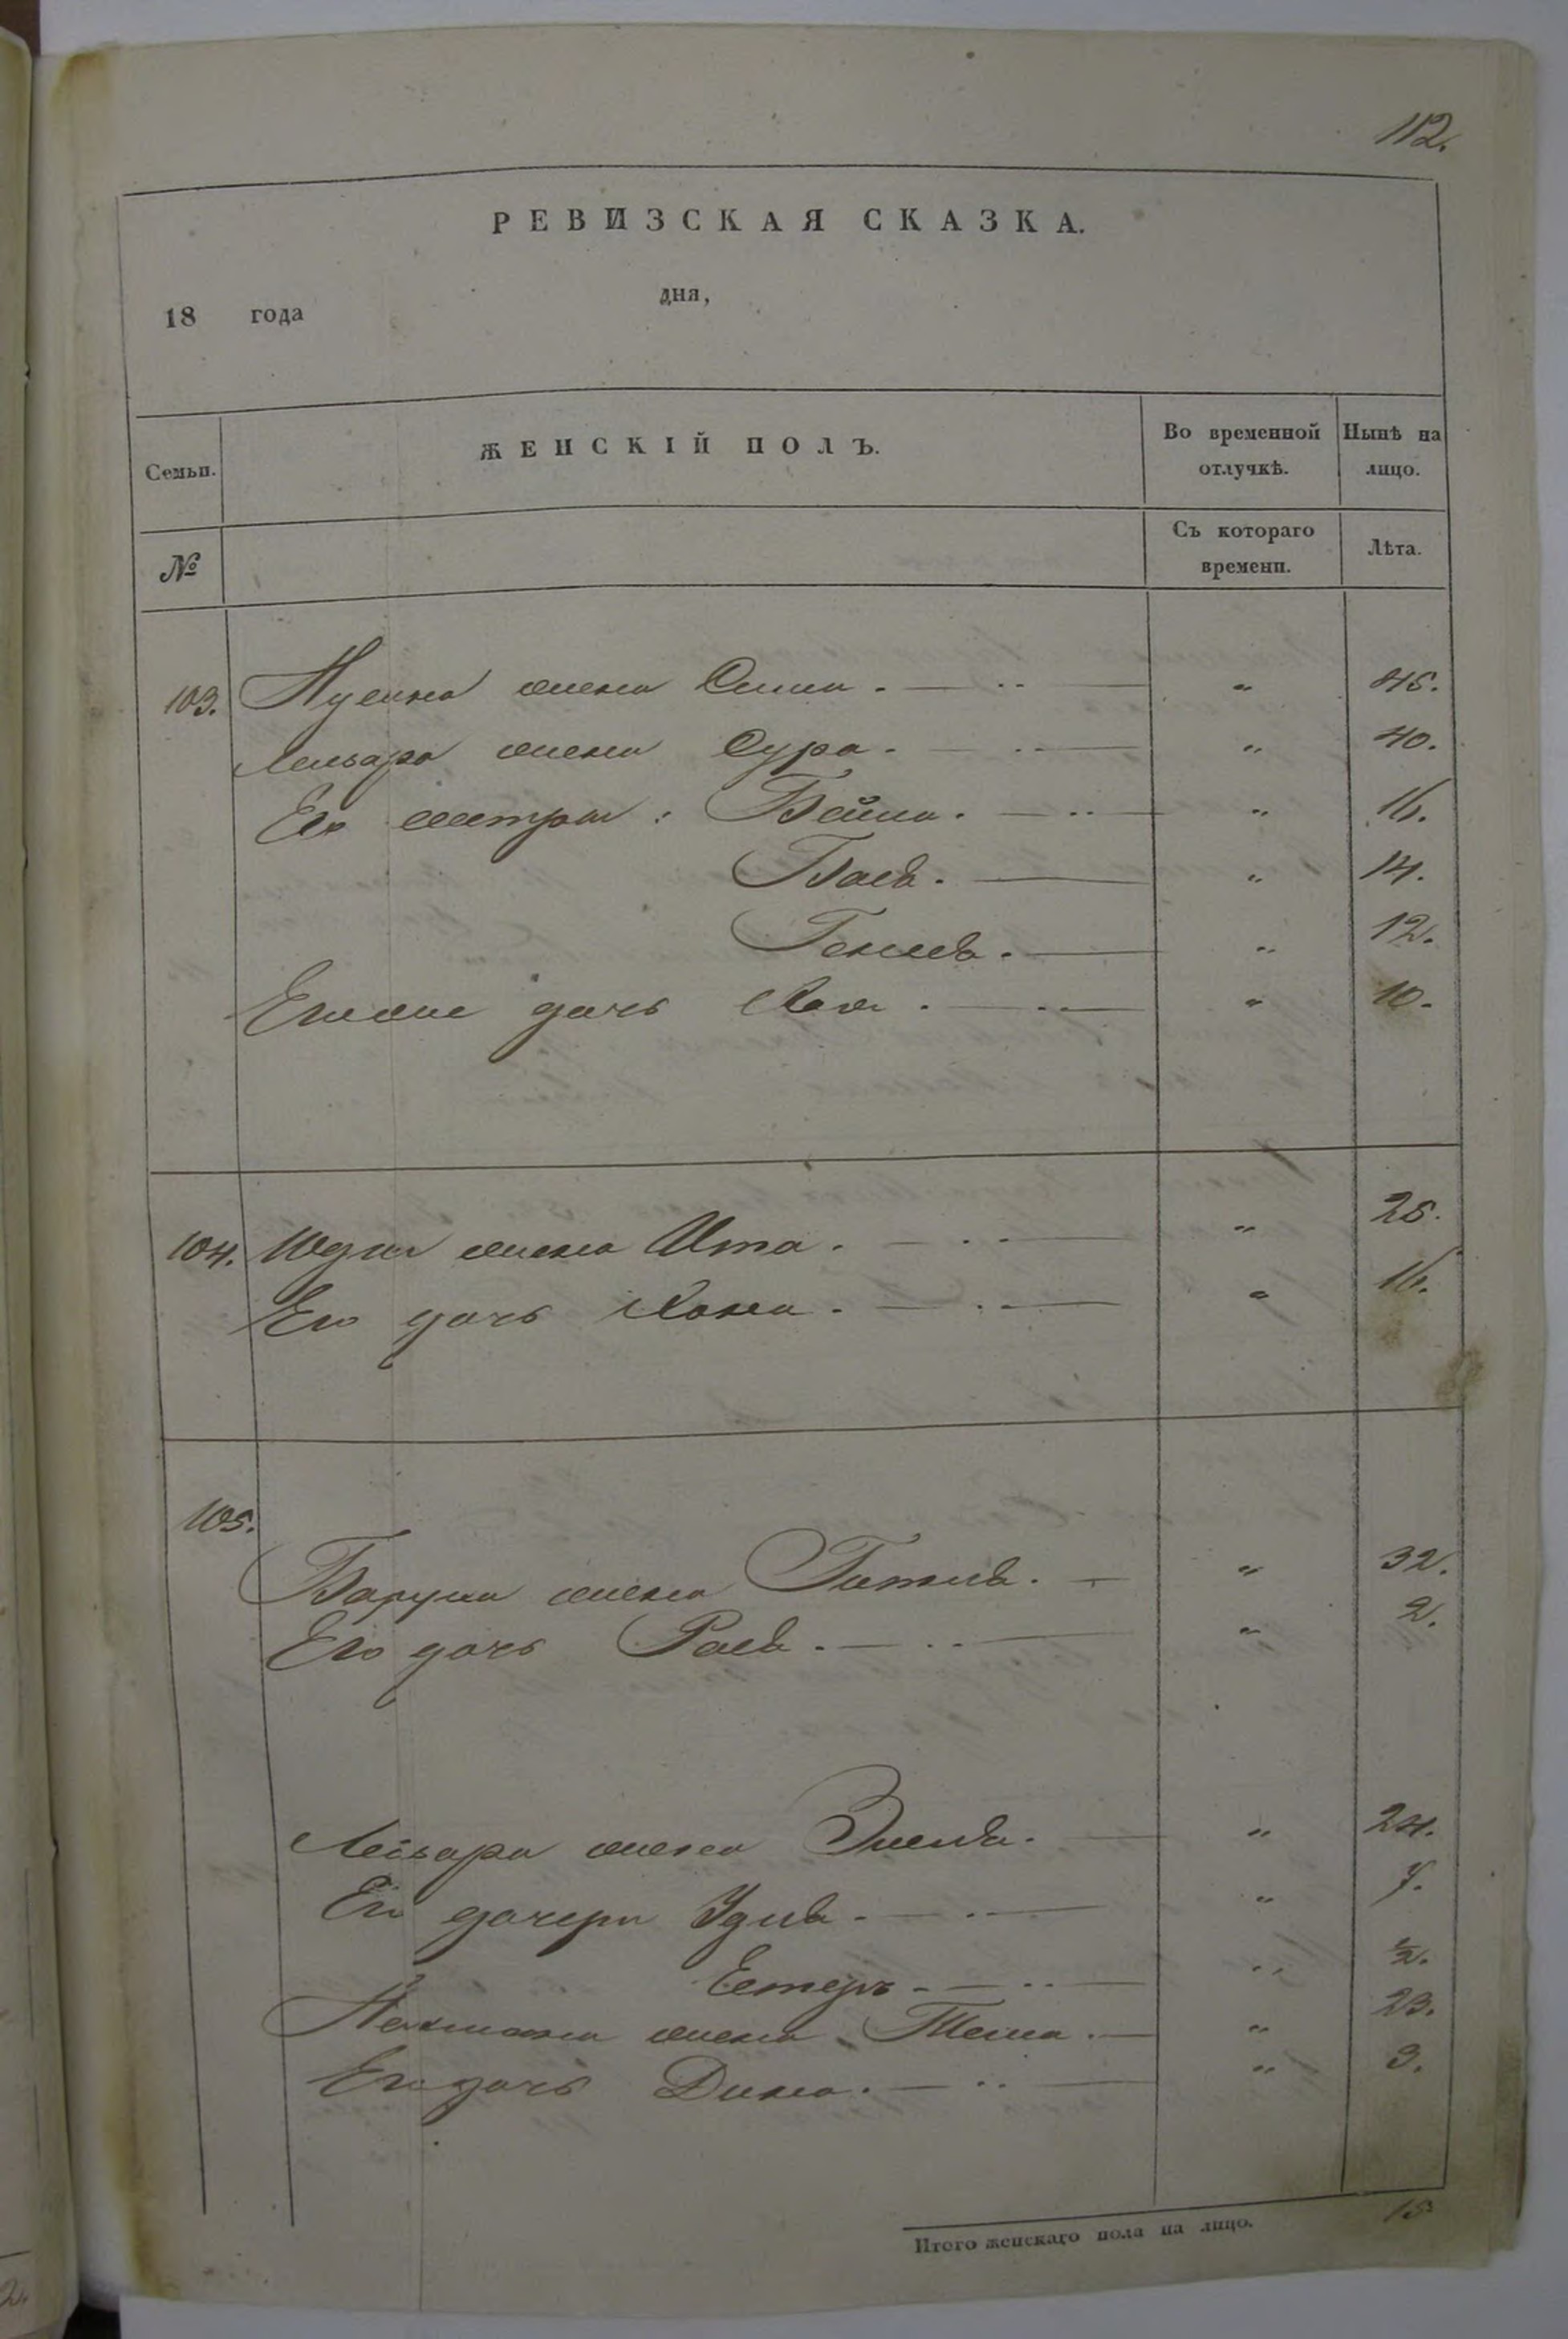 112.
РЕВИЗСКАЯ СКАЗКА.
18 года дня,
Семьи. ЖЕНСКІЙ ПОЛЪ. Во временной отлучкѣ. Нынѣ на лицо.
№ Съ котораго времени. Лѣта.
103. жена Сима. " 45.
Лейзара жена Сура. " 40.
Его сестры: Бейла. " 16.
Бася. " 14.
Геня. " 12.
дочь Хая. " 10.
104. Юдки жена Ита. " 25.
Его дочь Хана. " 16.
105.
Баруха жена Гитля. " 32.
Его дочь Рася. " 2.
Лейзара жена " 24.
Его дочери Удля. " 7.
Естеръ. " ½.
Нахмана жена " 23.
Его дочь Дина. " 3.
Итого женскаго пола на лицо. 15